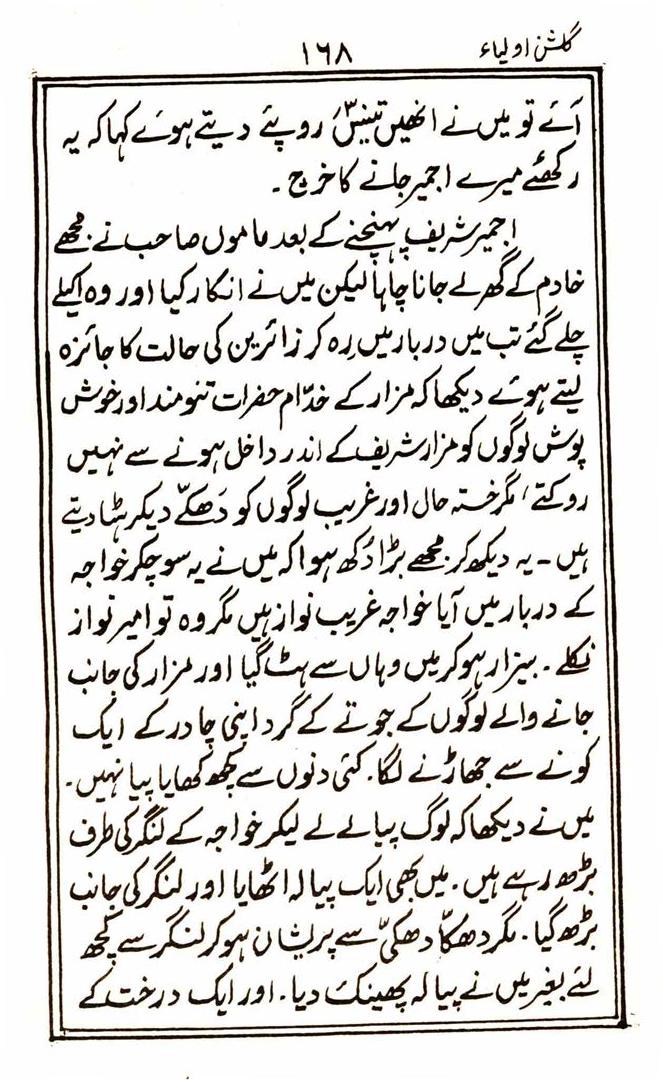 گلشن اولیاء ۱۶۸
آئے تو میں نے انھیں تینتیسؔ روپئے دیتے ہوئے کہا کہ یہ
رکھئے میرے اجمیر جانے کا خرچ ۔
اجمیر شریف پہنچنے کے بعد ماموں صاحب نے مجھے
خادم کے گھر لے جانا چاہا لیکن میں نے انکار کیا اور وہ اکیلے
چلے گئے تب میں دربار میں رہ کر زائرین کی حالت کا جائزہ
لیتے ہوئے دیکھا کہ مزار کے خدّام حضرات تنومند اور خوش
پوش لوگوں کو مزار شریف کے اندر داخل ہونے سے نہیں
روکتے ، مگر خستہ حال اور غریب لوگوں کو دَھکّے دیکر ہٹا دیتے
ہیں ۔ یہ دیکھ کر مجھے بڑا دُکھ ہوا کہ میں نے یہ سوچکر خواجہ
کے دربار میں آیا خواجہ غریب نواز ہیں مگر وہ تو امیر نواز
نکلے ۔ بیزار ہو کر میں وہاں سے ہٹ گیا اور مزار کی جانب
جانے والے لوگوں کے جوتے کے گرد اپنی چادر کے ایک
کونے سے جھاڑنے لگا ۔ کئی دنوں سے کچھ کھایا پیا نہیں ۔
میں نے دیکھا کہ لوگ پیالے لے لیکر خواجہ کے لنگر کی طرف
بڑھ رہے ہیں ۔ میں بھی ایک پیالہ اٹھایا اور لنگر کی جانب
بڑھ گیا ۔ مگر دھکّا دھکّی سے پریشان ہو کر لنگر سے کچھ
لئے بغیر میں نے پیالہ پھینک دیا ۔ اور ایک درخت کے